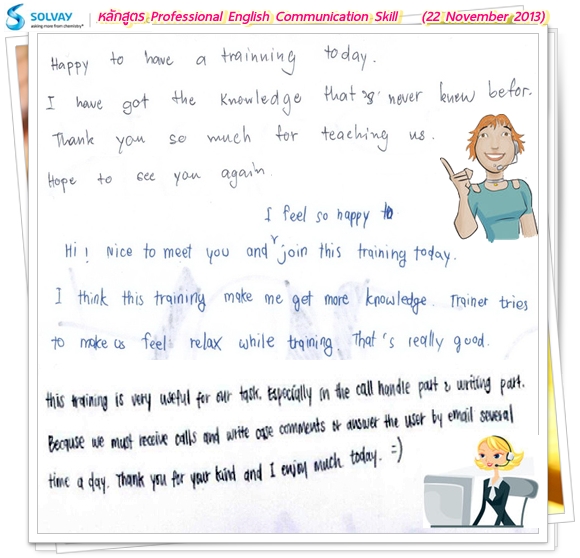 SOLVAY
asking more from chemistry®
หลักสูตร Professional English Communication Skill (22 November 2013)
Happy to have a trainning today.
I have got the knowledge that never knew befor.
Thank you so much for teaching us.
Hope to see you again.
I feel so happy to
Hi! Nice to meet you and join this training today.
I think this training make me get more knowledge. Trainer tries
to make us feel relax while training. That's really good.
this training is very useful for our task. Especially in the call handle part & writing part.
Because we must receive calls and write case comments or answer the user by email several
time a day. Thank you for your kind and I enjoy much today. =)